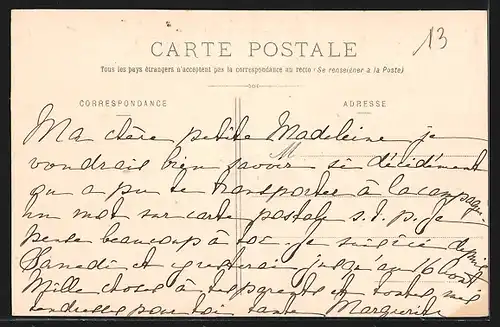 13
CARTE POSTALE
Tous les pays étrangers n'acceptent pas la correspondance au recto (Se renseigner à la Poste)
CORRESPONDANCE
ADRESSE
M
Ma chère petite Madeleine je
voudrais bien savoir si décidément
on a pu te transporter à la campagne.
un mot sur carte postale s. t. p. je
pense beaucoup à toi. je suis ici depuis
Samedi et y resterai jusqu'au 16 août
Mille choses à tes parents et toutes mes
tendresses pour toi tante Marguerite